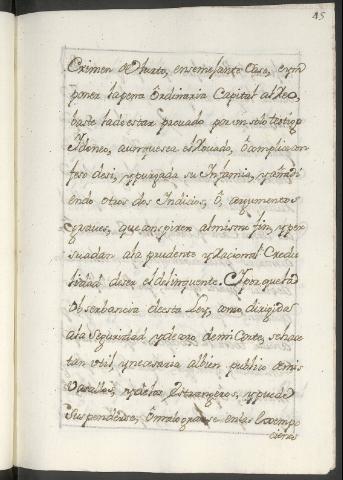 45
Crimen de Hurto, en semejante Clase, è ym
poner la pena Ôrdinaria Capital al Reo,
baste lo de estar provado por un solo testigo
Idoneo, aunque sea el Rovado, ô complice con
feso de si, y purgada su Infamia, y añadi
endo otros dos Indicios, ô, argumentos
graves, que conspiren al mismo fin, y per
suadan a la prudente y Racional Credu
lidad de ser el delinquente. I porque la
Observancia de esta Ley, como dirigida
a la Seguridad y de oro de mi Corte, se hace
tan util, y necesaria al bien publico de mis
Vasallos, y de los Estrangeros, y puede
Suspenderse, ô malograrse en las Exemp
ciones